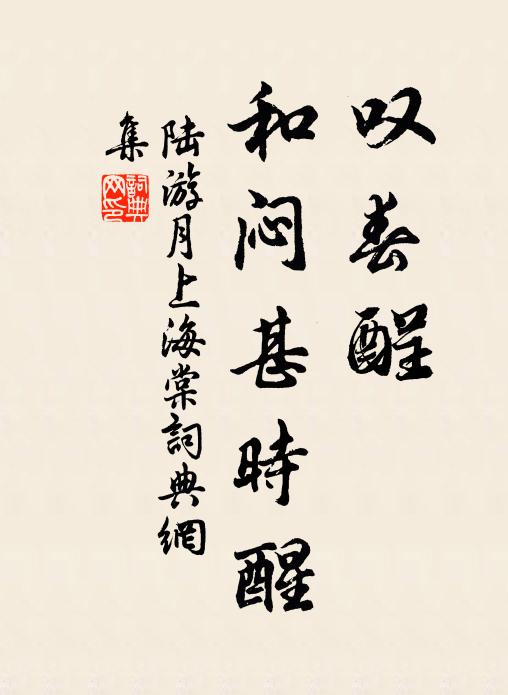 叹春酲
和闷甚时醒
陆游月上海棠詞典網
集
詞典網印